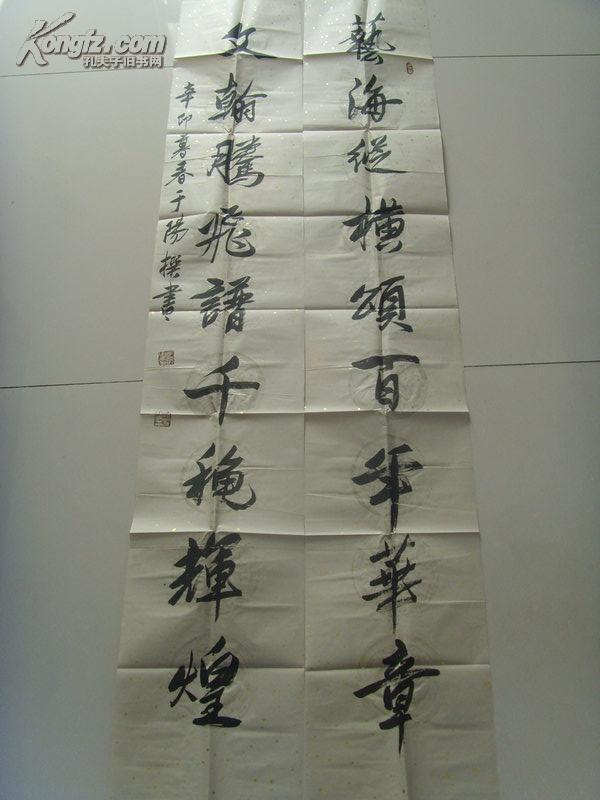 藝海縱橫頌百年華章
文翰騰飛譜千秋輝煌
辛卯春于陽撰書
Kongfz.com
孔夫子旧书网